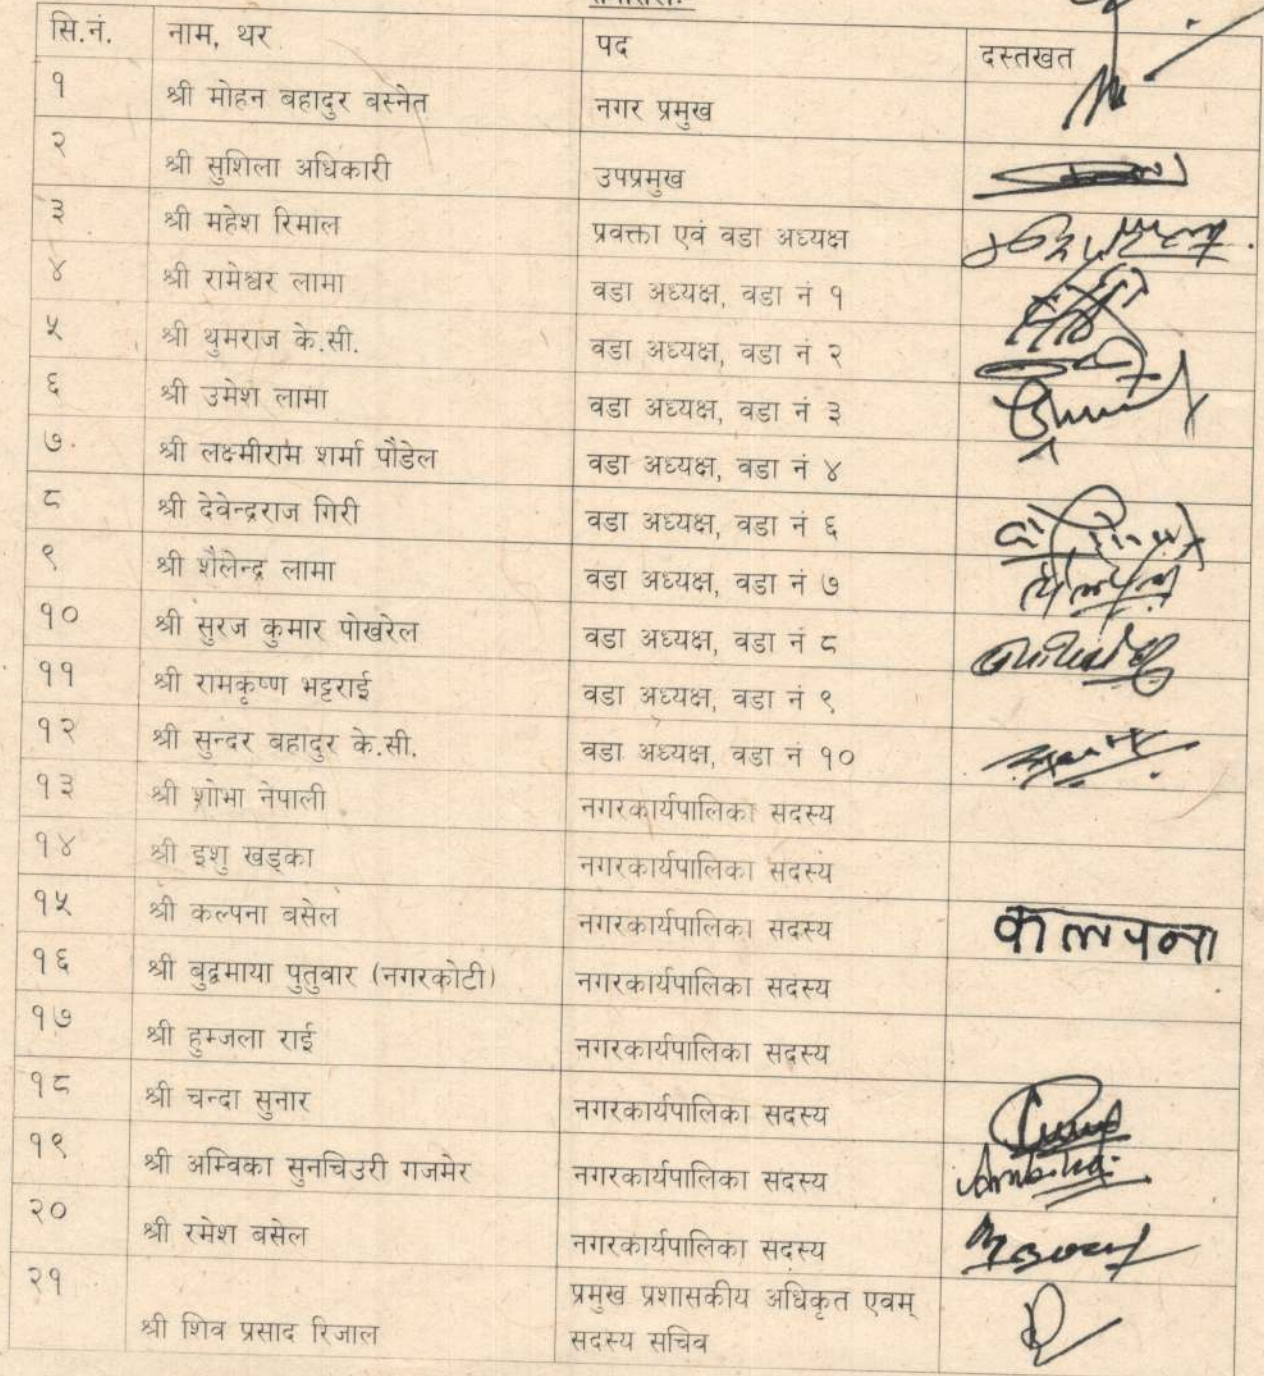 सि.नं. नाम, थर पद दस्तखत
१ श्री मोहन बहादुर बस्नेत नगर प्रमुख
२ श्री सुशिला अधिकारी उपप्रमुख
३ श्री महेश रिमाल प्रवक्ता एवं वडा अध्यक्ष
४ श्री रामेश्वर लामा वडा अध्यक्ष, वडा नं १
५ श्री थुमराज के.सी. वडा अध्यक्ष, वडा नं २
६ श्री उमेश लामा वडा अध्यक्ष, वडा नं ३
७ श्री लक्ष्मीराम शर्मा पौडेल वडा अध्यक्ष, वडा नं ४
८ श्री देवेन्द्रराज गिरी वडा अध्यक्ष, वडा नं ६
९ श्री शैलेन्द्र लामा वडा अध्यक्ष, वडा नं ७
१० श्री सुरज कुमार पोखरेल वडा अध्यक्ष, वडा नं ८
११ श्री रामकृष्ण भट्टराई वडा अध्यक्ष, वडा नं ९
१२ श्री सुन्दर बहादुर के.सी. वडा अध्यक्ष, वडा नं १०
१३ श्री शोभा नेपाली नगरकार्यपालिका सदस्य
१४ श्री इशु खड्का नगरकार्यपालिका सदस्य
१५ श्री कल्पना बसेल नगरकार्यपालिका सदस्य कल्पना
१६ श्री बुद्वमाया पुतुवार (नगरकोटी) नगरकार्यपालिका सदस्य
१७ श्री हुम्जला राई नगरकार्यपालिका सदस्य
१८ श्री चन्दा सुनार नगरकार्यपालिका सदस्य
१९ श्री अम्विका सुनचिउरी गजमेर नगरकार्यपालिका सदस्य Ambika
२० श्री रमेश बसेल नगरकार्यपालिका सदस्य
२१ श्री शिव प्रसाद रिजाल प्रमुख प्रशासकीय अधिकृत एवम्
सदस्य सचिव